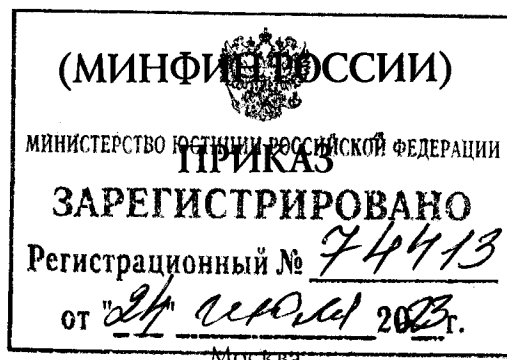 (МИНФИН РОССИИ)
МИНИСТЕРСТВО ЮСТИЦИИ РОССИЙСКОЙ ФЕДЕРАЦИИ
ПРИКАЗ
ЗАРЕГИСТРИРОВАНО
Регистрационный № 74413
от "24" июля 2023 г.
Москва